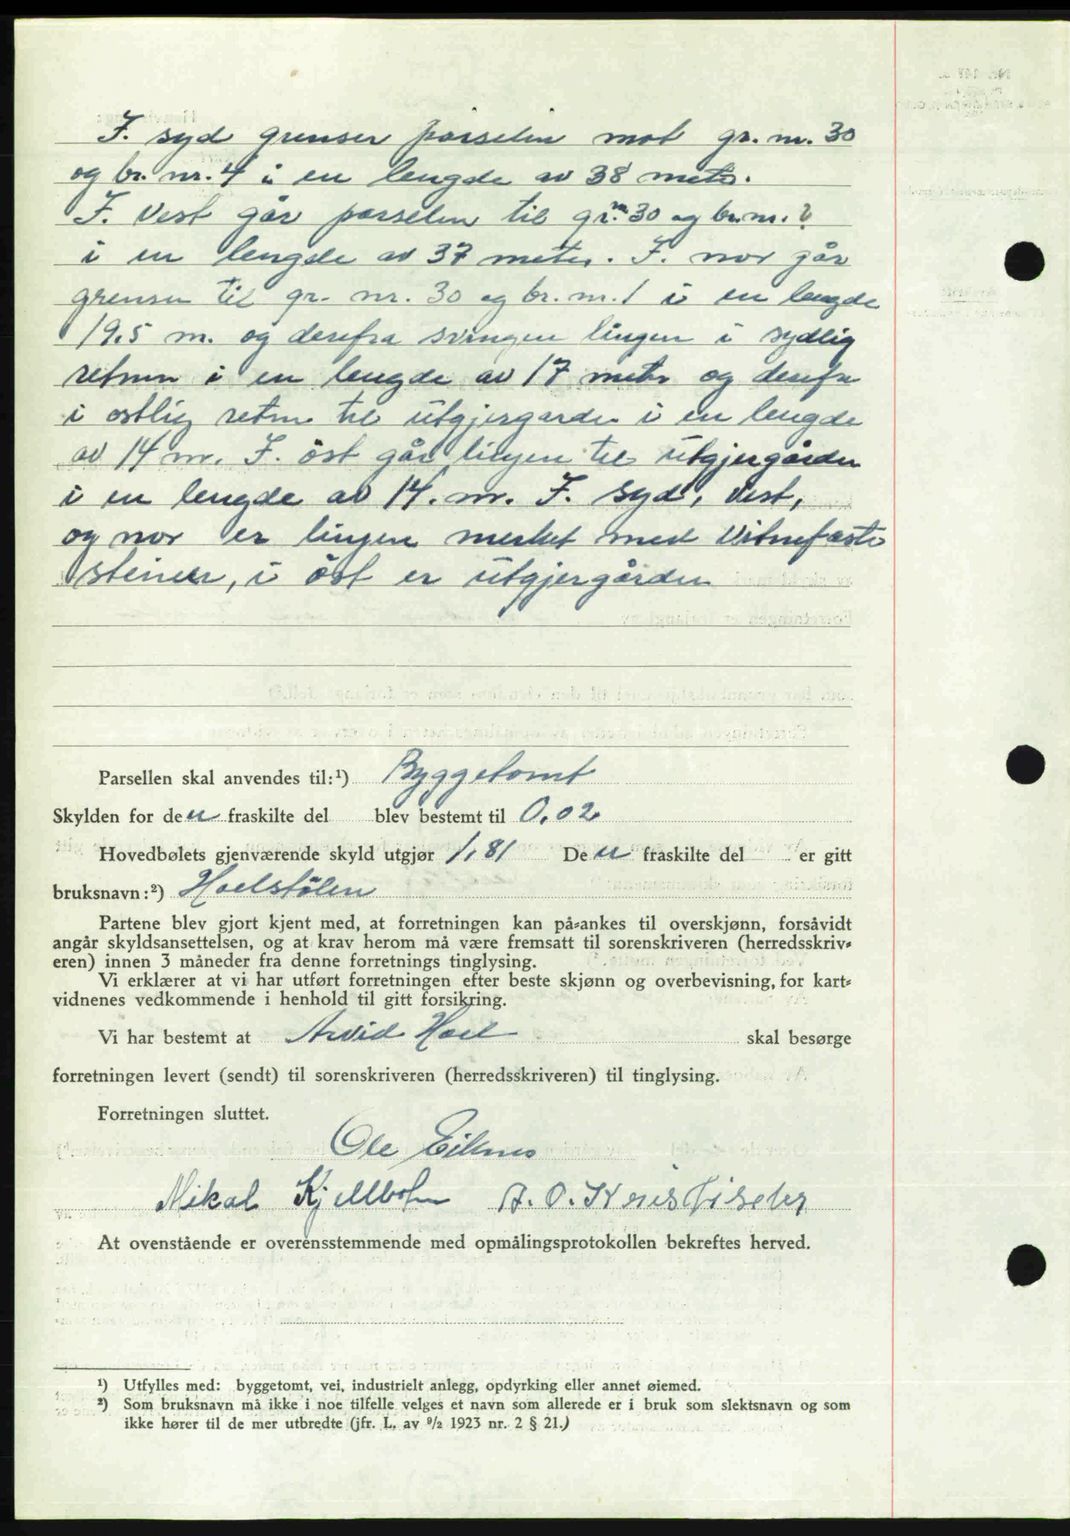 I. syd grenser parselin mot gr. nr. 30
og br. nr. 4 i en lengde av 38 meter.
I. vest går parselen til gr. nr. 30 og br. nr. 2
i en lengde av 37 meter. I. nor går
grensen til gr. nr. 30 og br. nr. 1 i en lengde
19.5 m. og derefra svingen lingen i sydlig
retnin i en lengde av 17 meter og derefra
i ostlig retnin til utgjergarden i en lengde
av 14 m. I. öst går lingen til utgjergården
i en lengde av 14. m. I. syd, vest,
og nor er lingen merket med Vitnefaste
steiner, i öst er utgjergården
Parsellen skal anvendes til:¹) Byggetomt
Skylden for den fraskilte del blev bestemt til 0,02
Hovedbølets gjenværende skyld utgjør 1,81 Den fraskilte del er gitt
bruksnavn:²) Hoelstölen
Partene blev gjort kjent med, at forretningen kan på-ankes til overskjønn, forsåvidt
angår skyldsansettelsen, og at krav herom må være fremsatt til sorenskriveren (herredsskriv-
eren) innen 3 måneder fra denne forretnings tinglysing.
Vi erklærer at vi har utført forretningen efter beste skjønn og overbevisning, for kart-
vidnenes vedkommende i henhold til gitt forsikring.
Vi har bestemt at Arvid Hoel skal besørge
forretningen levert (sendt) til sorenskriveren (herredsskriveren) til tinglysing.
Forretningen sluttet.
Ole Eiknes
Mikal A. O.
At ovenstående er overensstemmende med opmålingsprotokollen bekreftes herved.
¹) Utfylles med: byggetomt, vei, industrielt anlegg, opdyrking eller annet øiemed.
²) Som bruksnavn må ikke i noe tilfelle velges et navn som allerede er i bruk som slektsnavn og som
ikke hører til de mer utbredte (jfr. L. av 9/2 1923 nr. 2 § 21.)